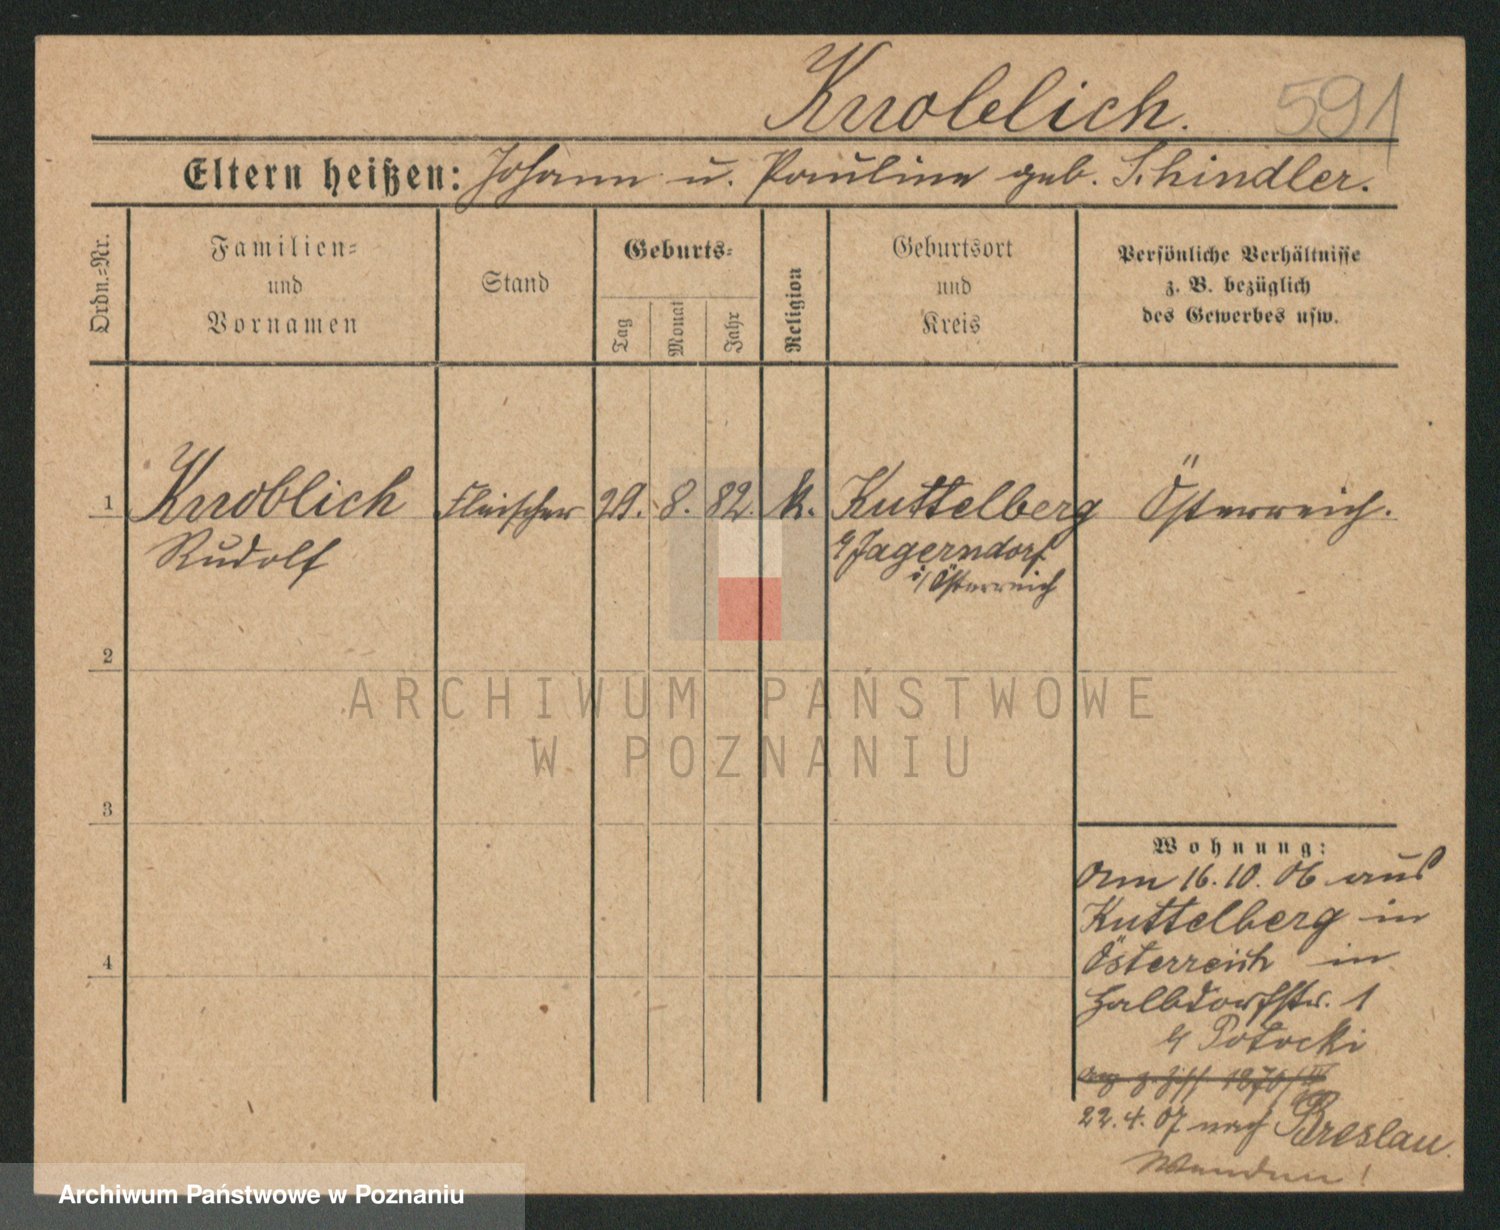 Knoblich. 591
Eltern heißen: Johann u. Pauline geb. Schindler.
Ordn.-Nr.
Familien-
und
Vornamen
Stand
Geburts-
Tag
Monat
Jahr
Religion
Geburtsort
und
Kreis
Persönliche Verhältnisse
z. B. bezüglich
des Gewerbes usw.
1 Knoblich Fleischer 29. 8. 82. k. Kuttelberg Österreich.
Rudolf Jagerndorf
i/Österreich
2
ARCHIWUM PAŃSTWOWE
W POZNANIU
3
Wohnung:
Am 16.10.06 aus
Kuttelberg in
Österreich in
4
Halbdorfstr. 1
Potocki
22.4.07 nach Breslau.
Archiwum Państwowe w Poznaniu